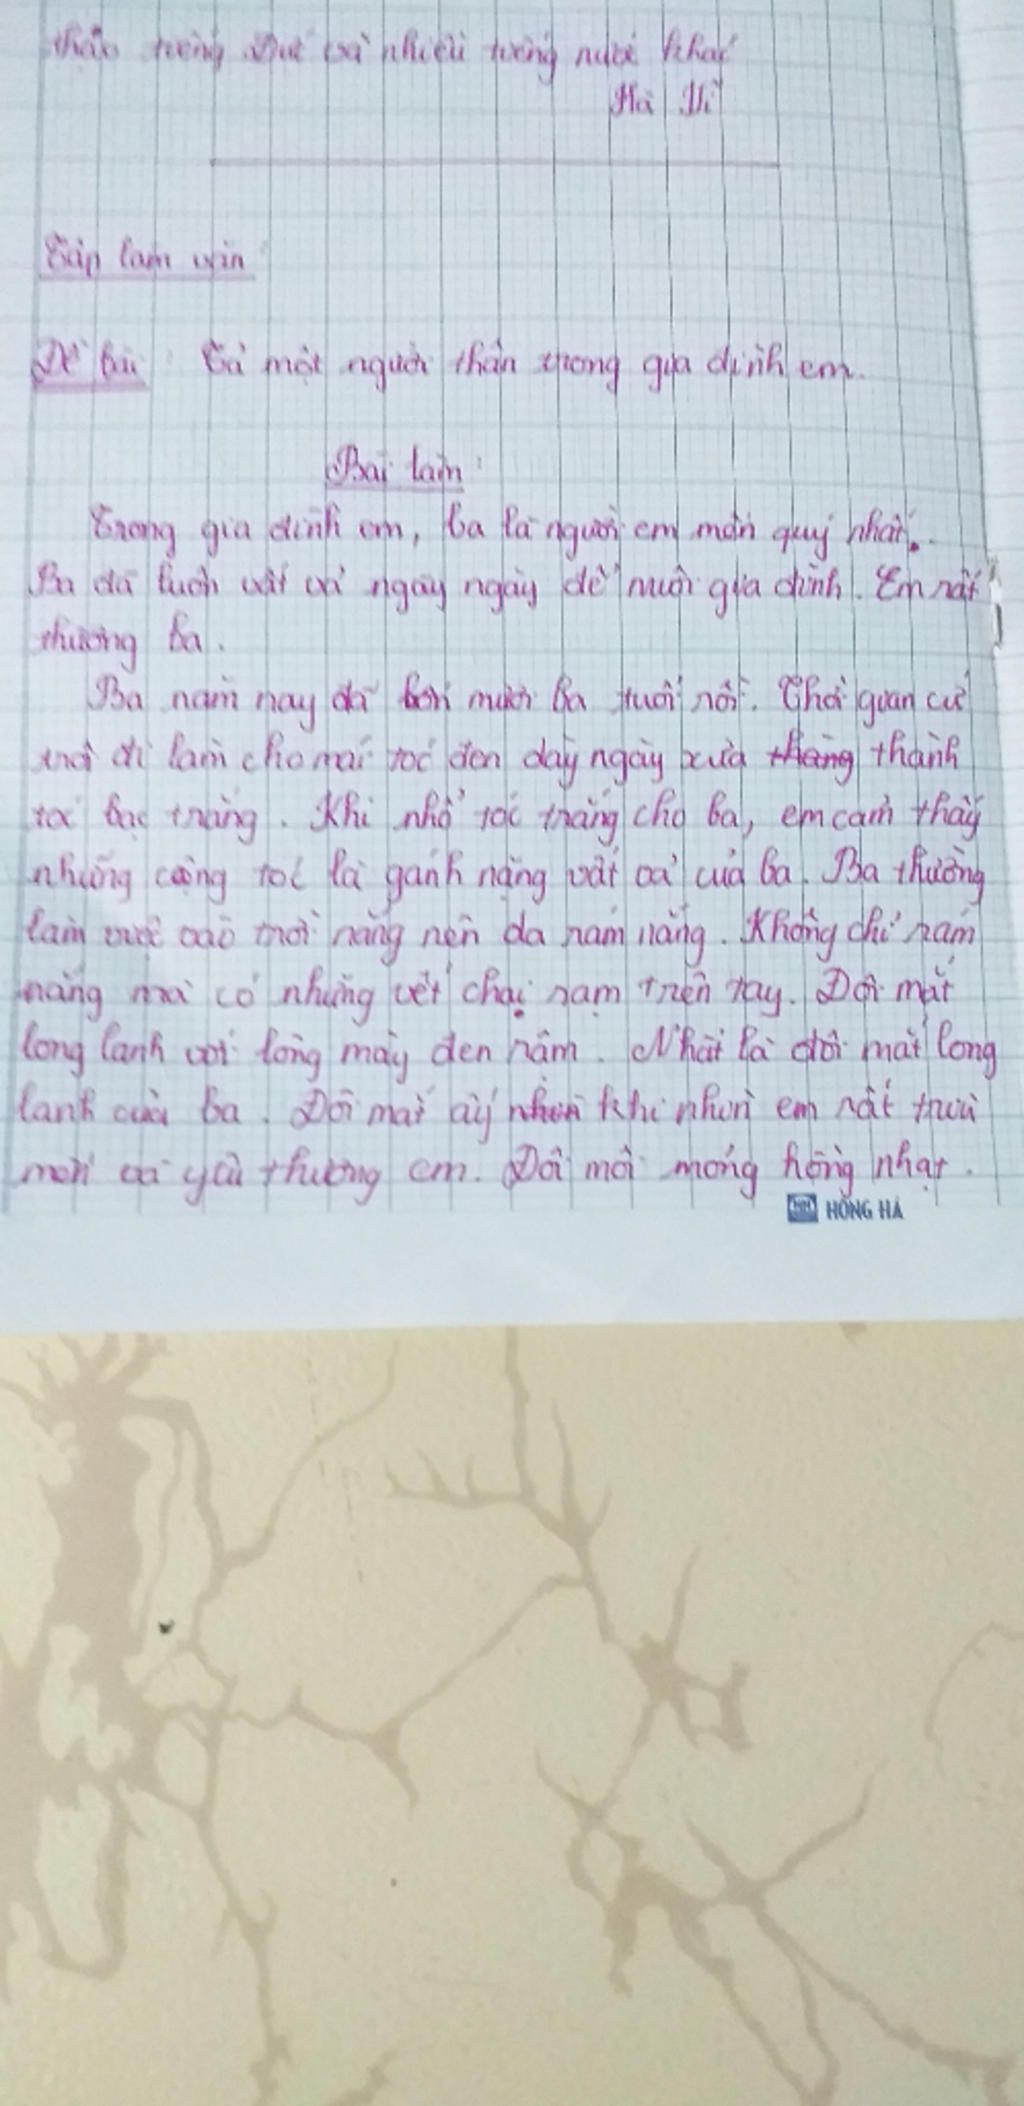 thạo tiếng Đức và nhiều tiếng nước khác
Hà Vi
Tập làm văn
Đề bài: Tả một người thân trong gia đình em.
Bài làm:
Trong gia đình em, ba là người em mến quý nhất.
Ba đã luôn vất vả ngày ngày để nuôi gia đình. Em rất
thương ba.
Ba năm nay đã bốn mươi ba tuổi rồi. Thời gian cứ
trôi đi làm cho mái tóc đen dày ngày xưa thành
tóc bạc trắng. Khi nhổ tóc trắng cho ba, em cảm thấy
những cọng tóc là gánh nặng vất vả của ba. Ba thường
làm việc vào trời nắng nên da rám nắng. Không chỉ rám
nắng mà có những vết chai sạm trên tay. Đôi mắt
long lanh với lông mày đen rậm. Nhất là đôi mắt long
lanh của ba. Đôi mắt ấy khi nhìn em rất trìu
mến và yêu thương em. Đôi môi mỏng hồng nhạt.
HỒNG HÀ